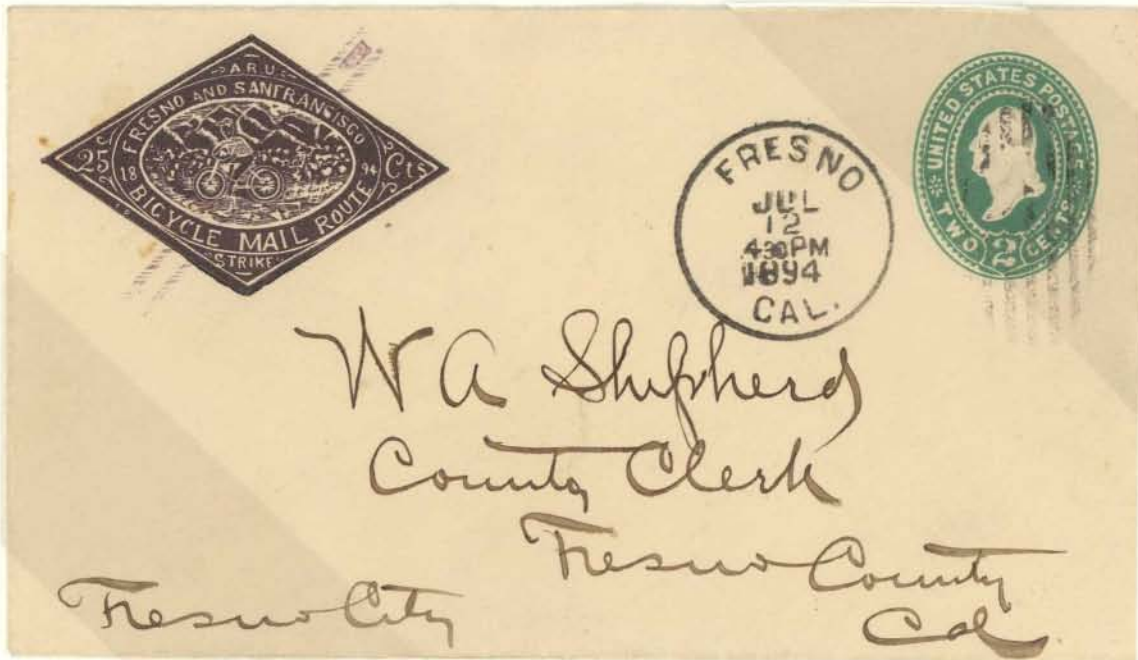 A.R.U.
FRESNO AND SANFRANSISCO
25 Cts
18 94
BICYCLE MAIL ROUTE
STRIKE
FRESNO
JUL
12
4 30 PM
1894
CAL.
UNITED STATES POSTAGE
TWO 2 CENTS
W A Shepherd
County Clerk
Fresno County
Fresno City
Cal